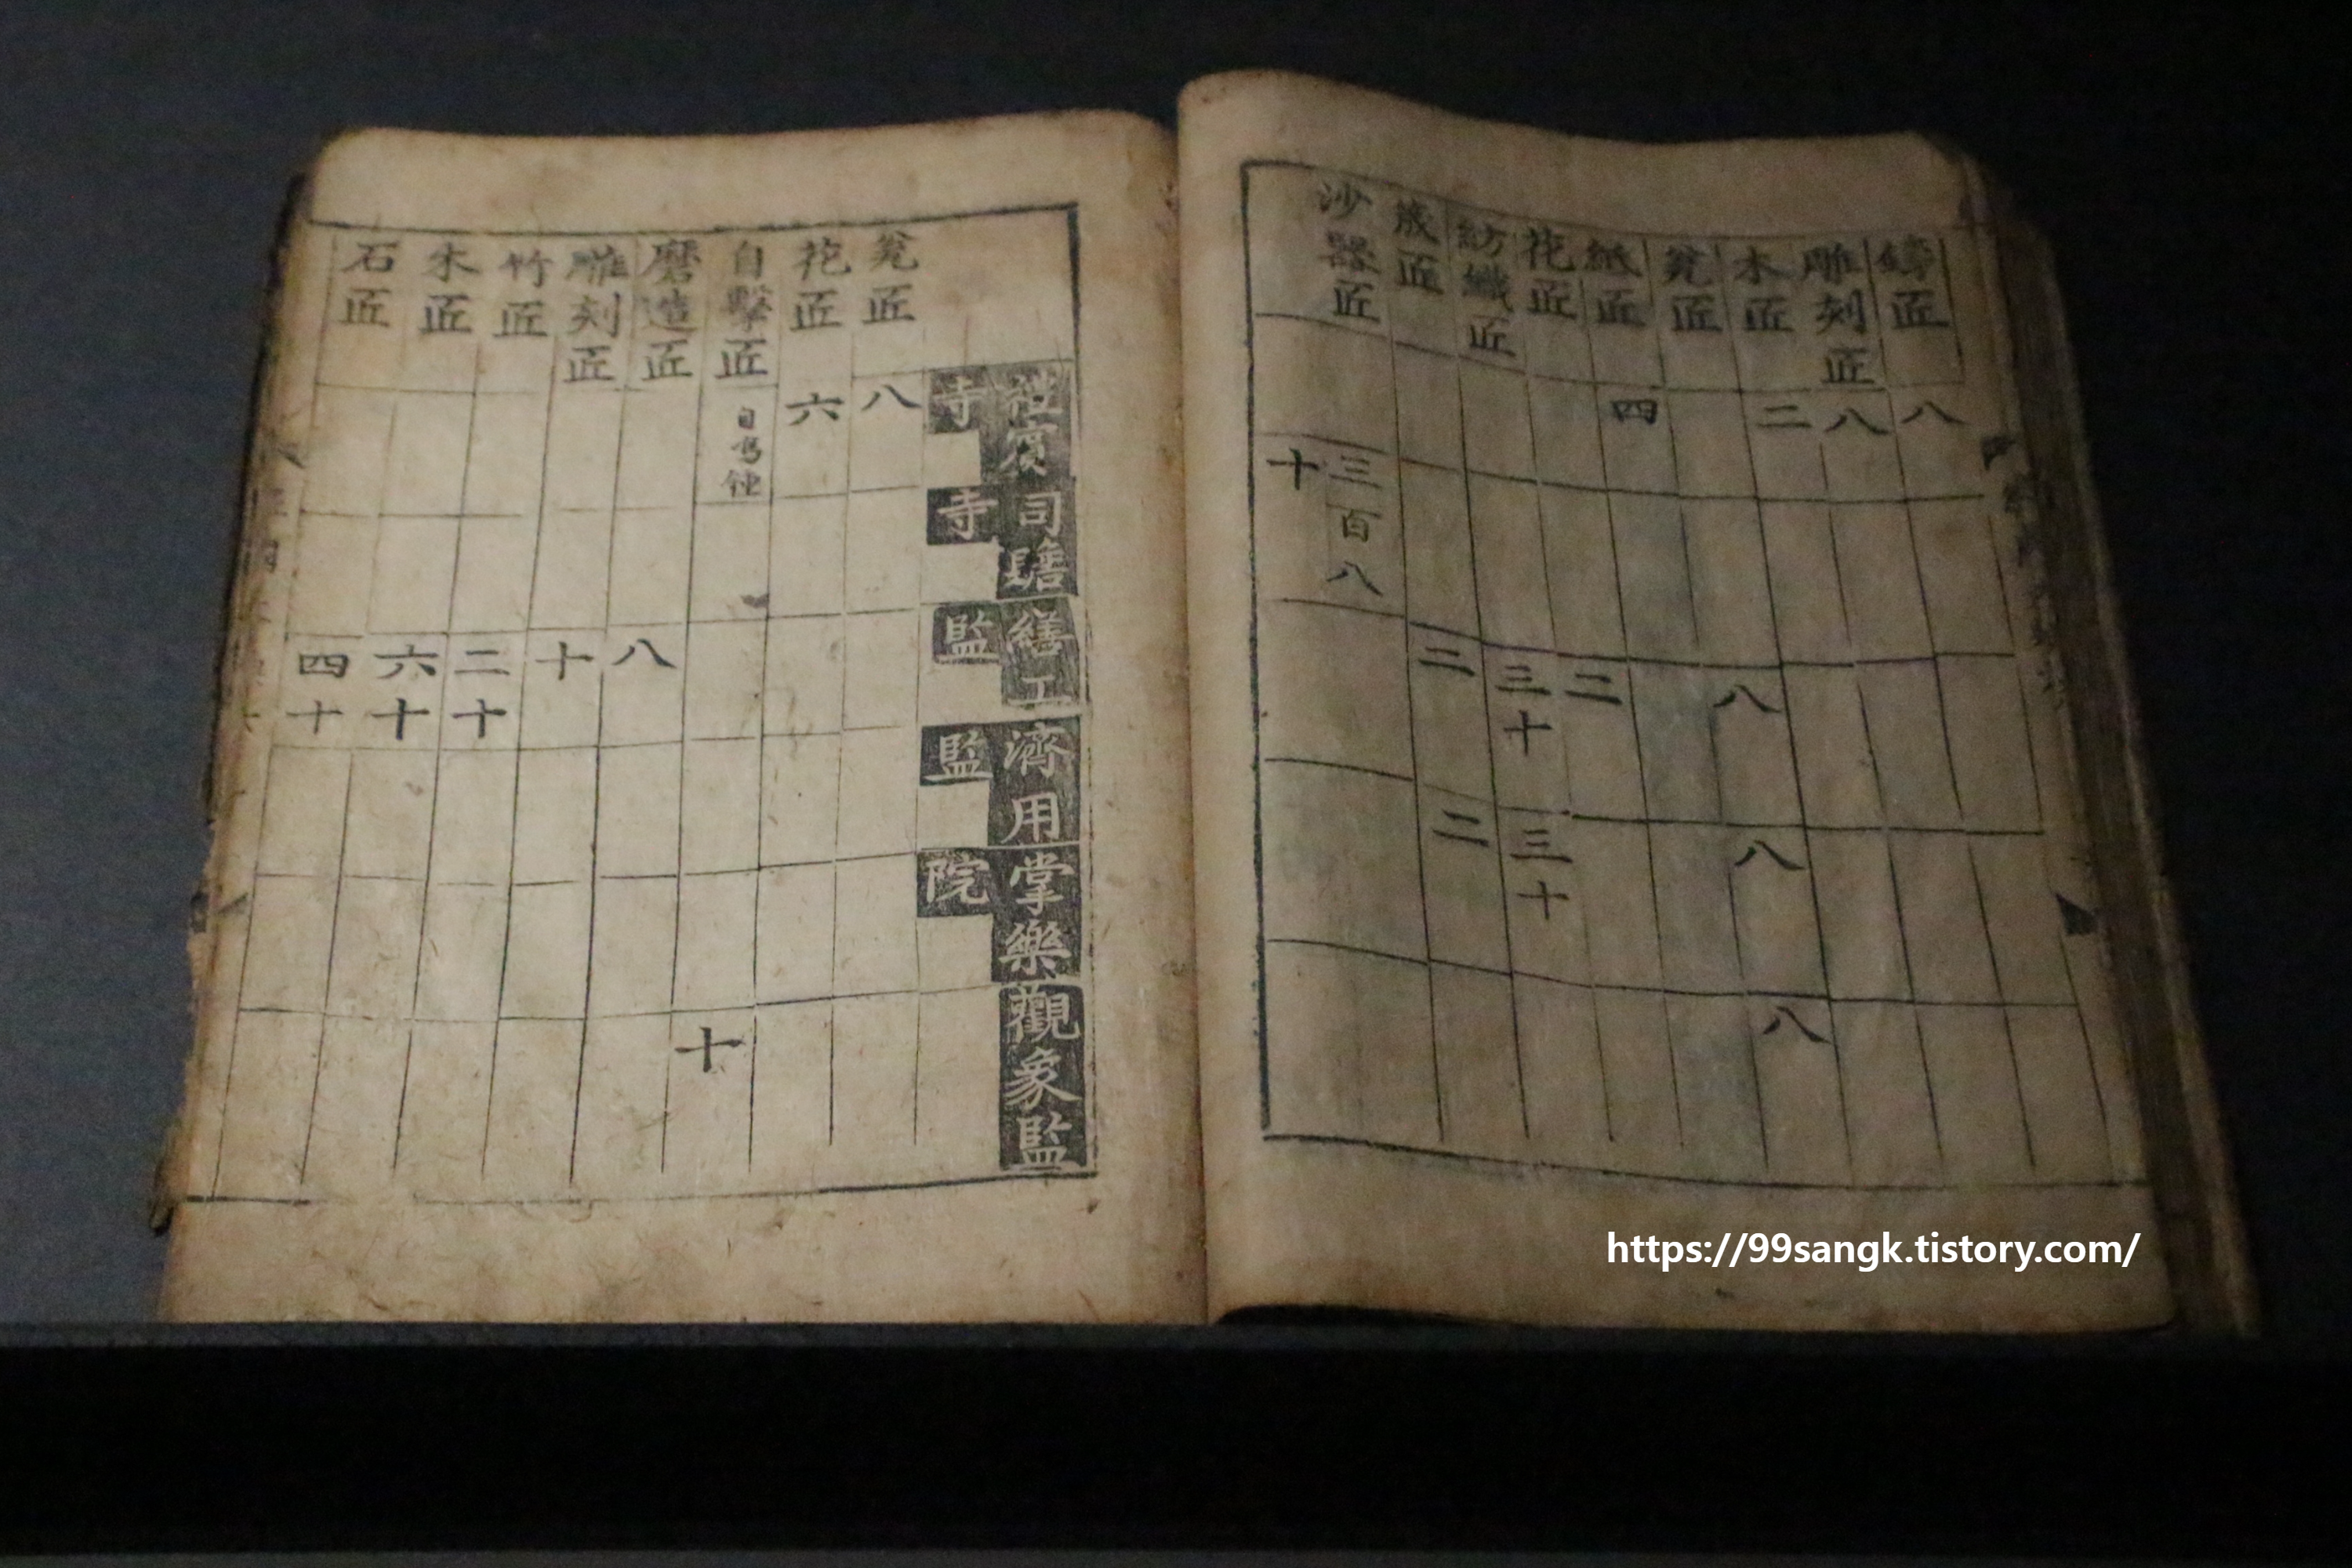 鑄匠 八
雕刻匠 八
木匠 二
瓮匠 八 八 八
紙匠 四
花匠 二
紡織匠 三十 三十
匠 二 二
沙器匠 三百八
十
禮賓寺 司贍寺 繕工監 濟用監 掌樂院 觀象監
瓮匠 八
花匠 六
自擊匠 自鳴钟 十
磨造匠 八
雕刻匠 十
竹匠 二十
木匠 六十
石匠 四十
https://99sangk.tistory.com/